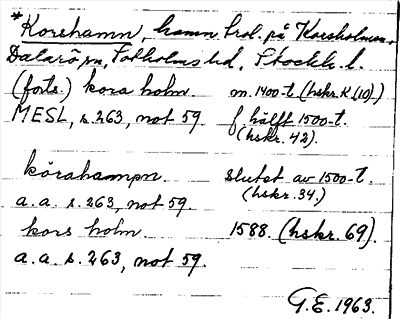 *Korshamn, hamn trol. på Korsholmen,
Dalarö sn, Sotholms hd, Stockh. l.
(forts.) kora holm. m. 1400-t (hskr. K (10).)
MESL, s. 263, not 59. f hälft 1500-t.
(hskr. 42).
körahampn. slutet av 1500-t.
(hskr. 34.)
a. a. s. 263, not 59.
kors holm. 1588. (hskr. 69).
a. a. s. 263, not 59.
G.E. 1963.